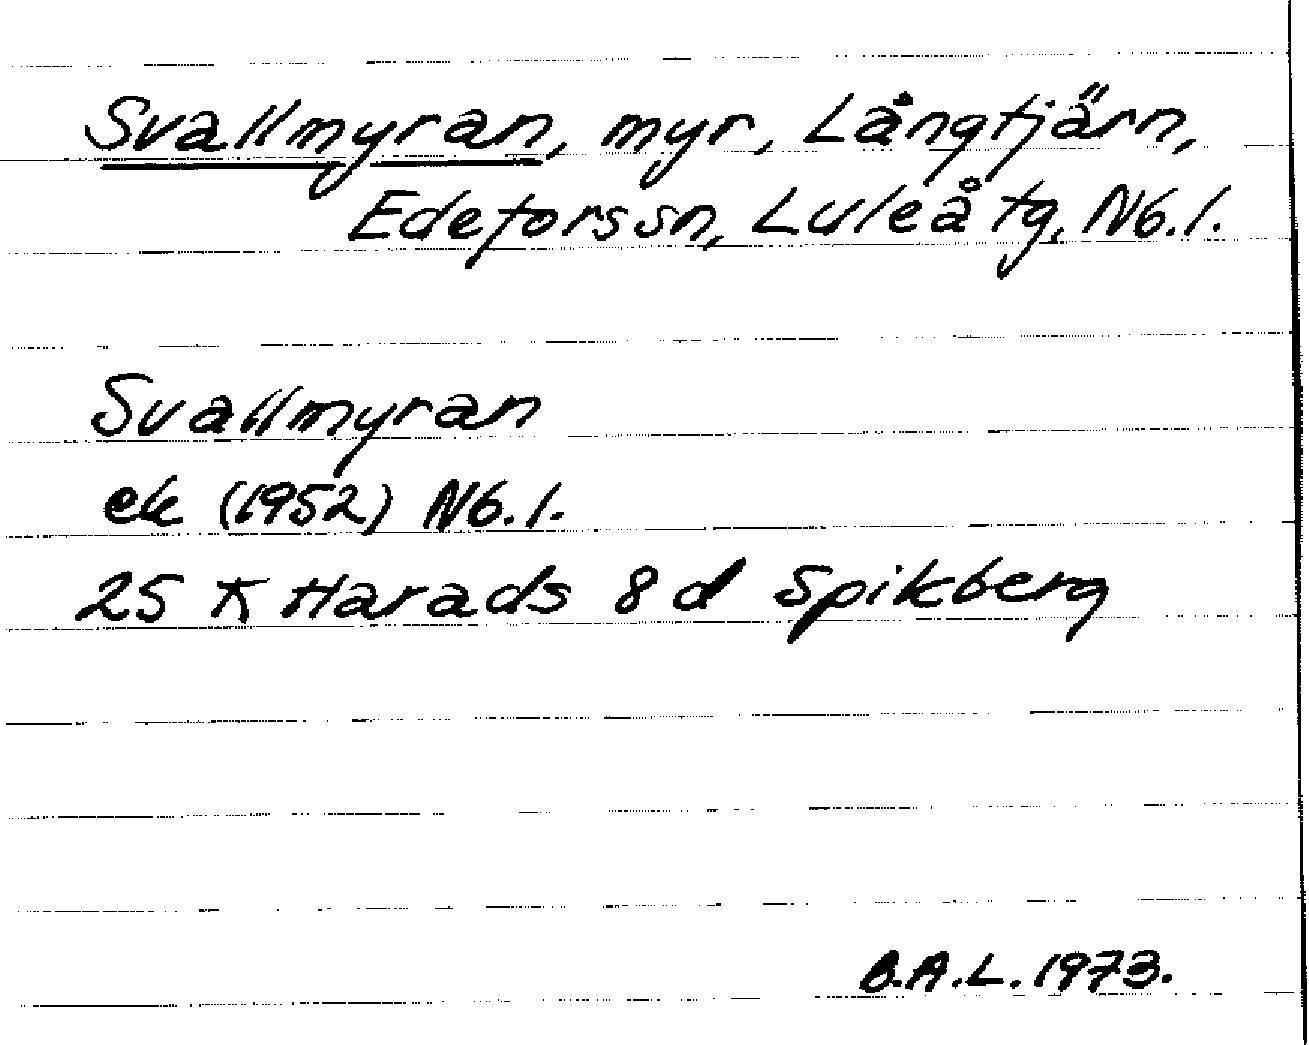 Svallmyran, myr, Långtjärn,
Edeforssn, Luleå tg, Nb.l.
Svallmyran
ek (1952) Nb.l.
25 K Harads 8 d Spikberg
B.A.L. 1973.